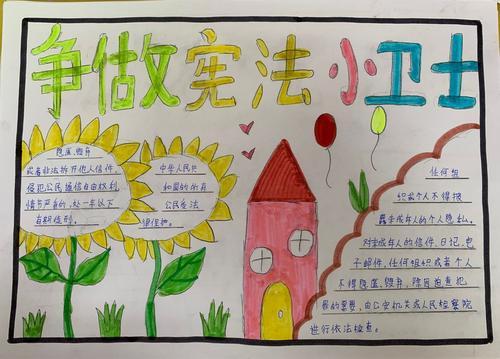 争做宪法小卫士
隐匿、毁弃
或者非法拆开他人信件,
侵犯公民通信自由权利,
情节严重的,处一年以下
有期徒刑
中华人民共
和国的所有
公民受法
律保护。
任何组
织或个人不得披
露未成年人的个人隐私。
对未成年人的信件、日记、电
子邮件,任何组织或者个人
不得隐匿、毁弃,除因追查犯
罪的需要,由公安机关或人民检察院
进行依法检查。